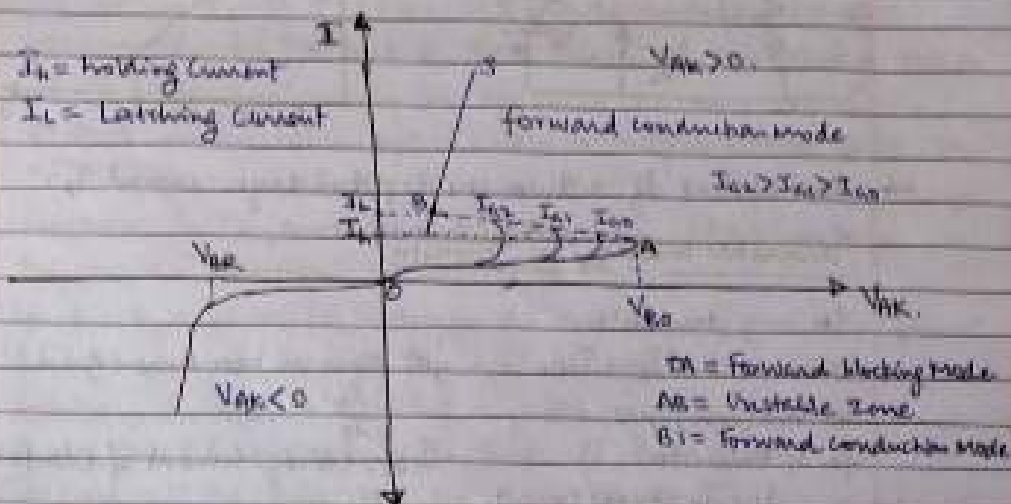 I
Ih = Holding Current
IL = Latching Current
VAK > 0.
forward conduction mode
IG2 > IG1 > IG0
IL B IG2 IG1 IG0
Ih
A
VBR
VBO
VAK.
VAK < 0
= Forward blocking mode
AB = Unstable zone
= Forward conduction mode